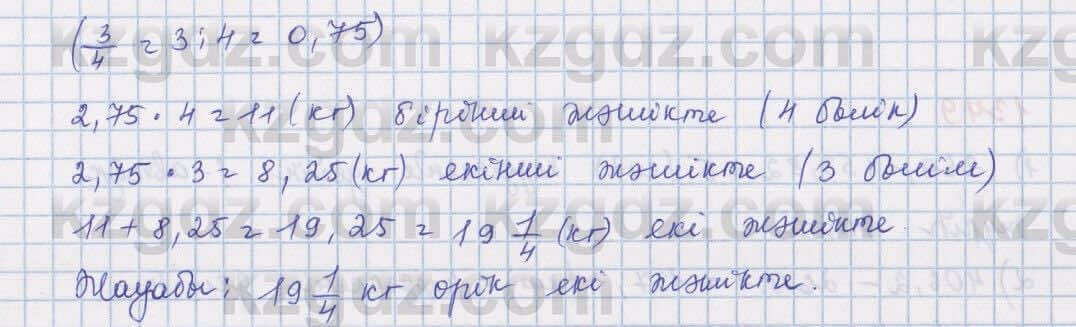 (3/4 = 3:4 = 0,75)
2,75 · 4 = 11 (кг) бірінші жәшікте (4 бөлік)
2,75 · 3 = 8,25 (кг) екінші жәшікте (3 бөлім)
11 + 8,25 = 19,25 = 19 1/4 (кг) екі жәшікте.
Жауабы: 19 1/4 кг өрік екі жәшікте.